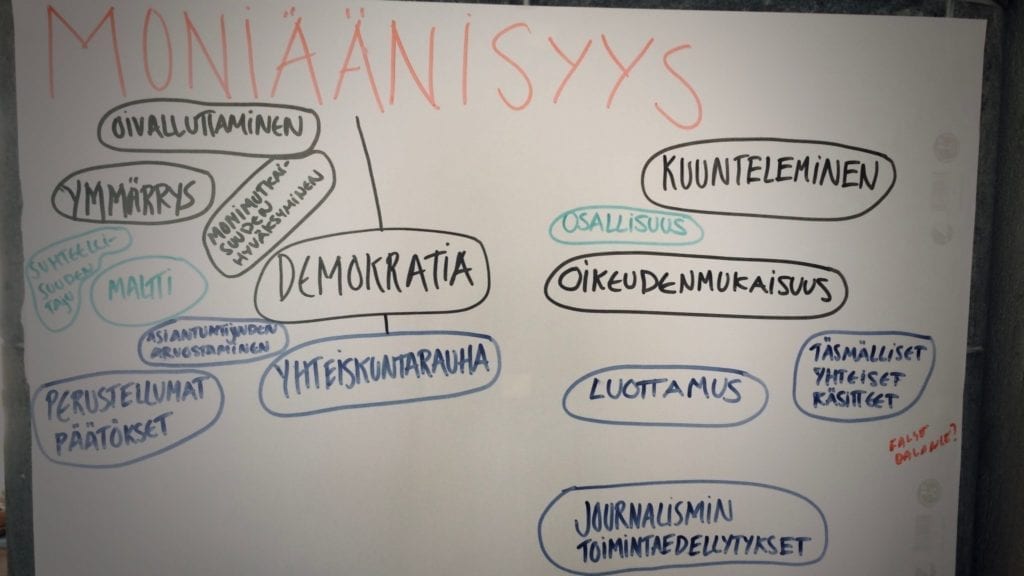 MONIÄÄNISYYS
OIVALLUTTAMINEN
YMMÄRRYS
MONIMUTKAI-
SUUDEN
HYVÄKSYMINEN
SUHTEELLI-
SUUDEN
TAJU
MALTTI
DEMOKRATIA
ASIANTUNTIJUUDEN
ARVOSTAMINEN
YHTEISKUNTARAUHA
PERUSTELLUMAT
PÄÄTÖKSET
KUUNTELEMINEN
OSALLISUUS
OIKEUDENMUKAISUUS
LUOTTAMUS
TÄSMÄLLISET
YHTEISET
KÄSITTEET
FALSE
BALANCE?
JOURNALISMIN
TOIMINTAEDELLYTYKSET